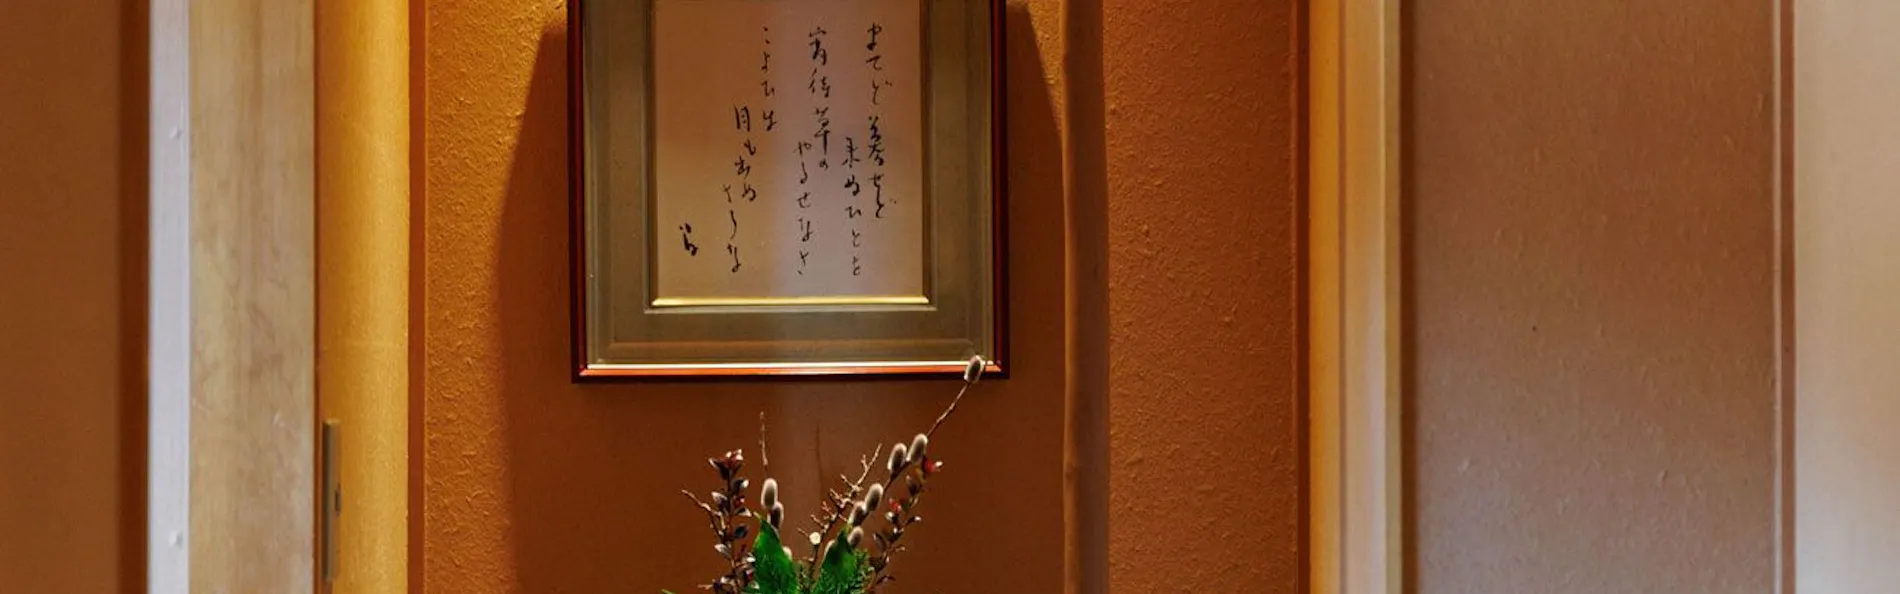 まてど暮せど
来ぬひとを
宵待草の
やるせなさ
こよひは
月も出ぬ
さうな